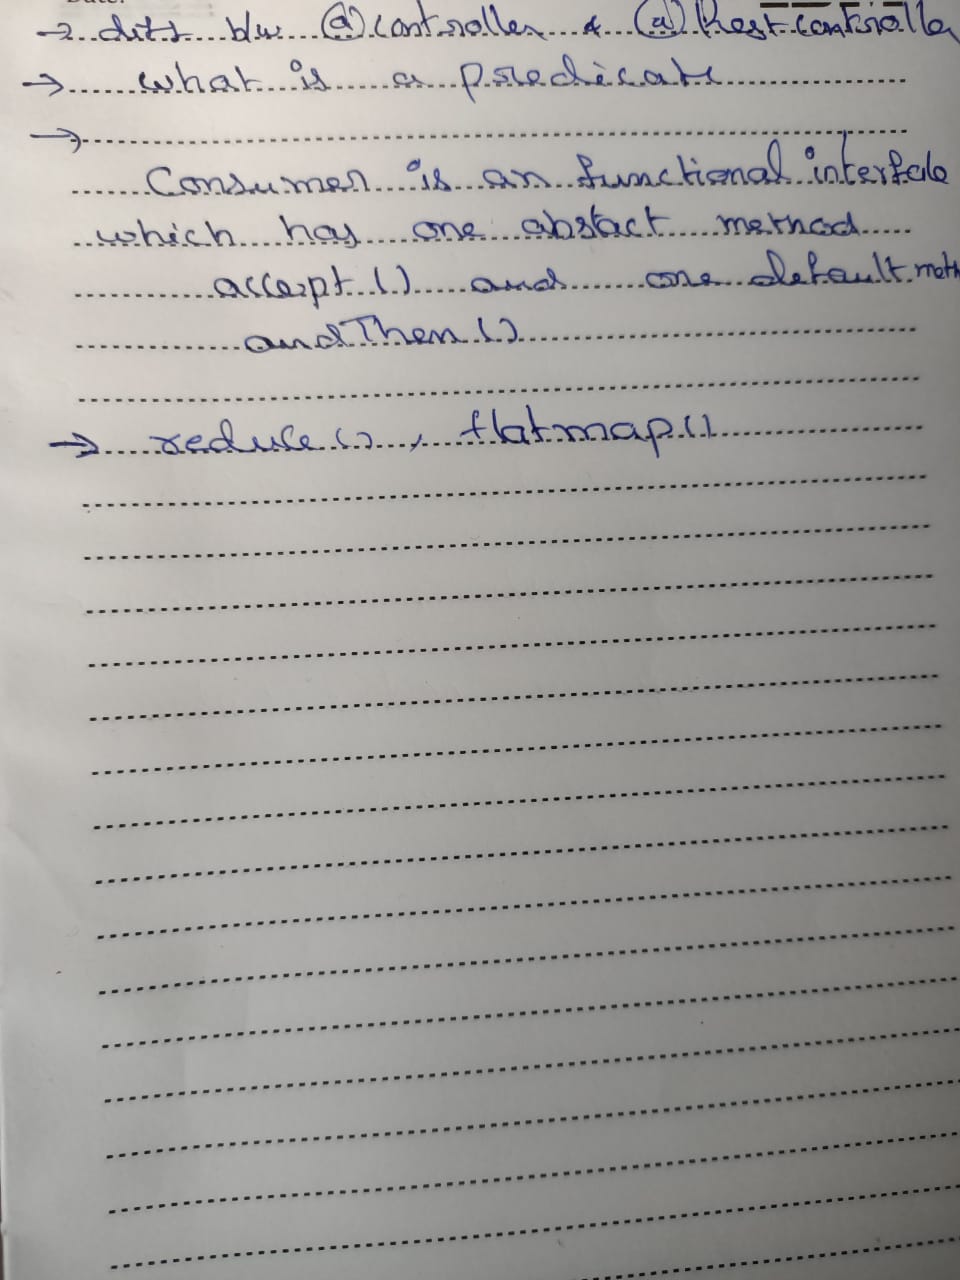 → diff b/w @controller & @Restcontroller
→ what is a predicate
→
Consumer is an functional interface
which has one abstact method
accept () and one default meth
andThen ()
→ reduce () , flatmap ()